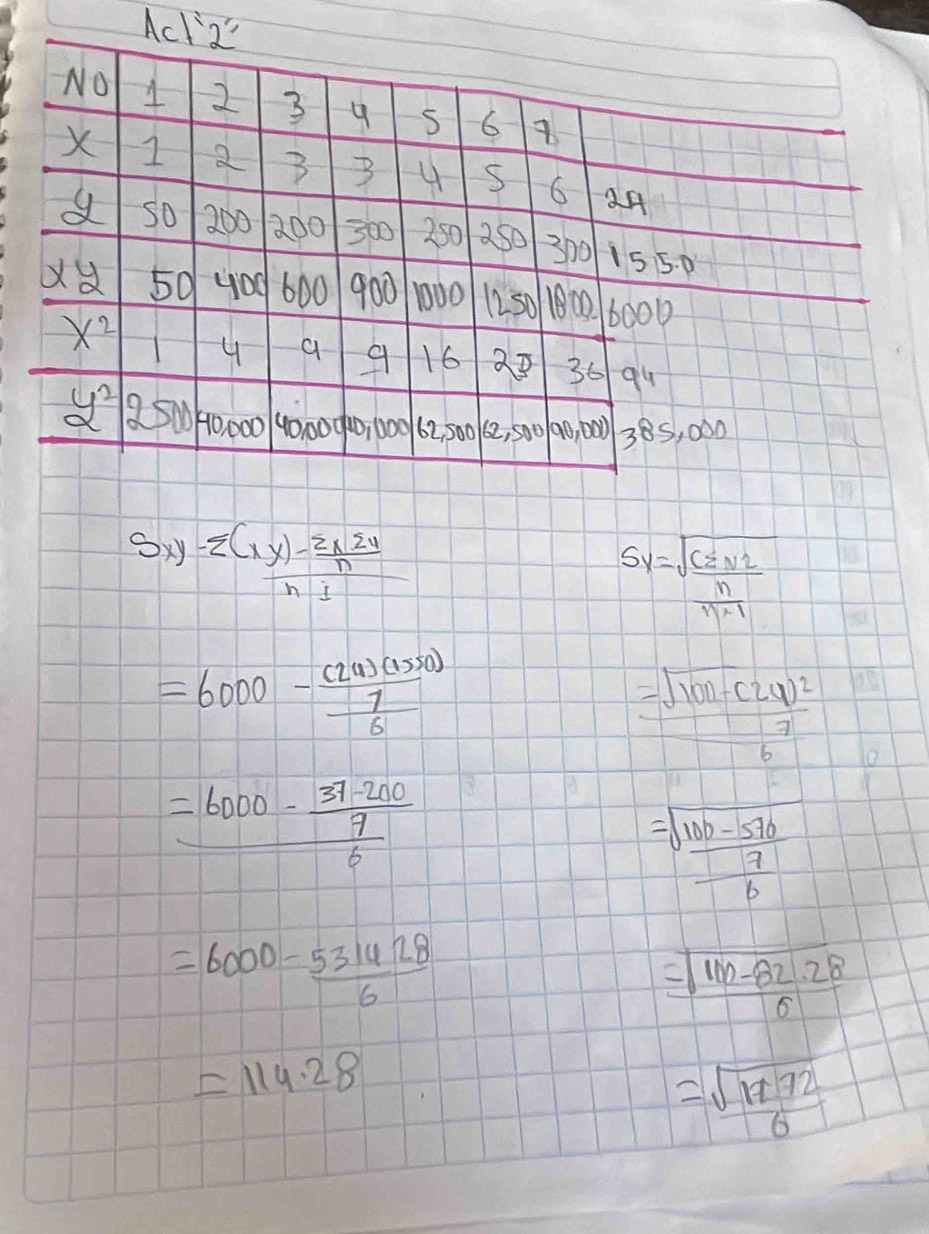 Act "2"
NO 1 2 3 4 5 6 7
X 1 2 3 3 4 5 6 24
y 50 200 200 300 250 250 300 1550
xy 50 400 600 900 1000 1250 1800 6000
x² 1 4 9 9 16 36 94
y² 2500 40,000 40,000 90,000 62,500 62,500 90,000 385,000
Sxy = Σ(xy) - Σx Σy / n / n 1
= 6000 - (24)(1550) / 7 / 6
= 6000 - 37-200 / 7 / 6
= 6000 - 5314 28 / 6
= 114.28
= √100 - (24)² / 7 / 6
= √100 - 576 / 7 / 6
= √100 - 82.28 / 6
= √17.72 / 6